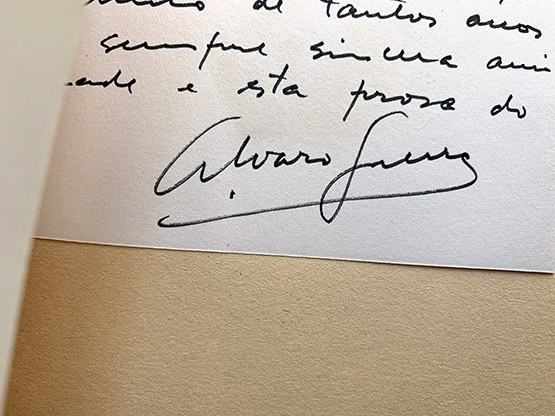 de tantos anos
sempre sincera ami
ade e esta prosa do
Álvaro Guerra